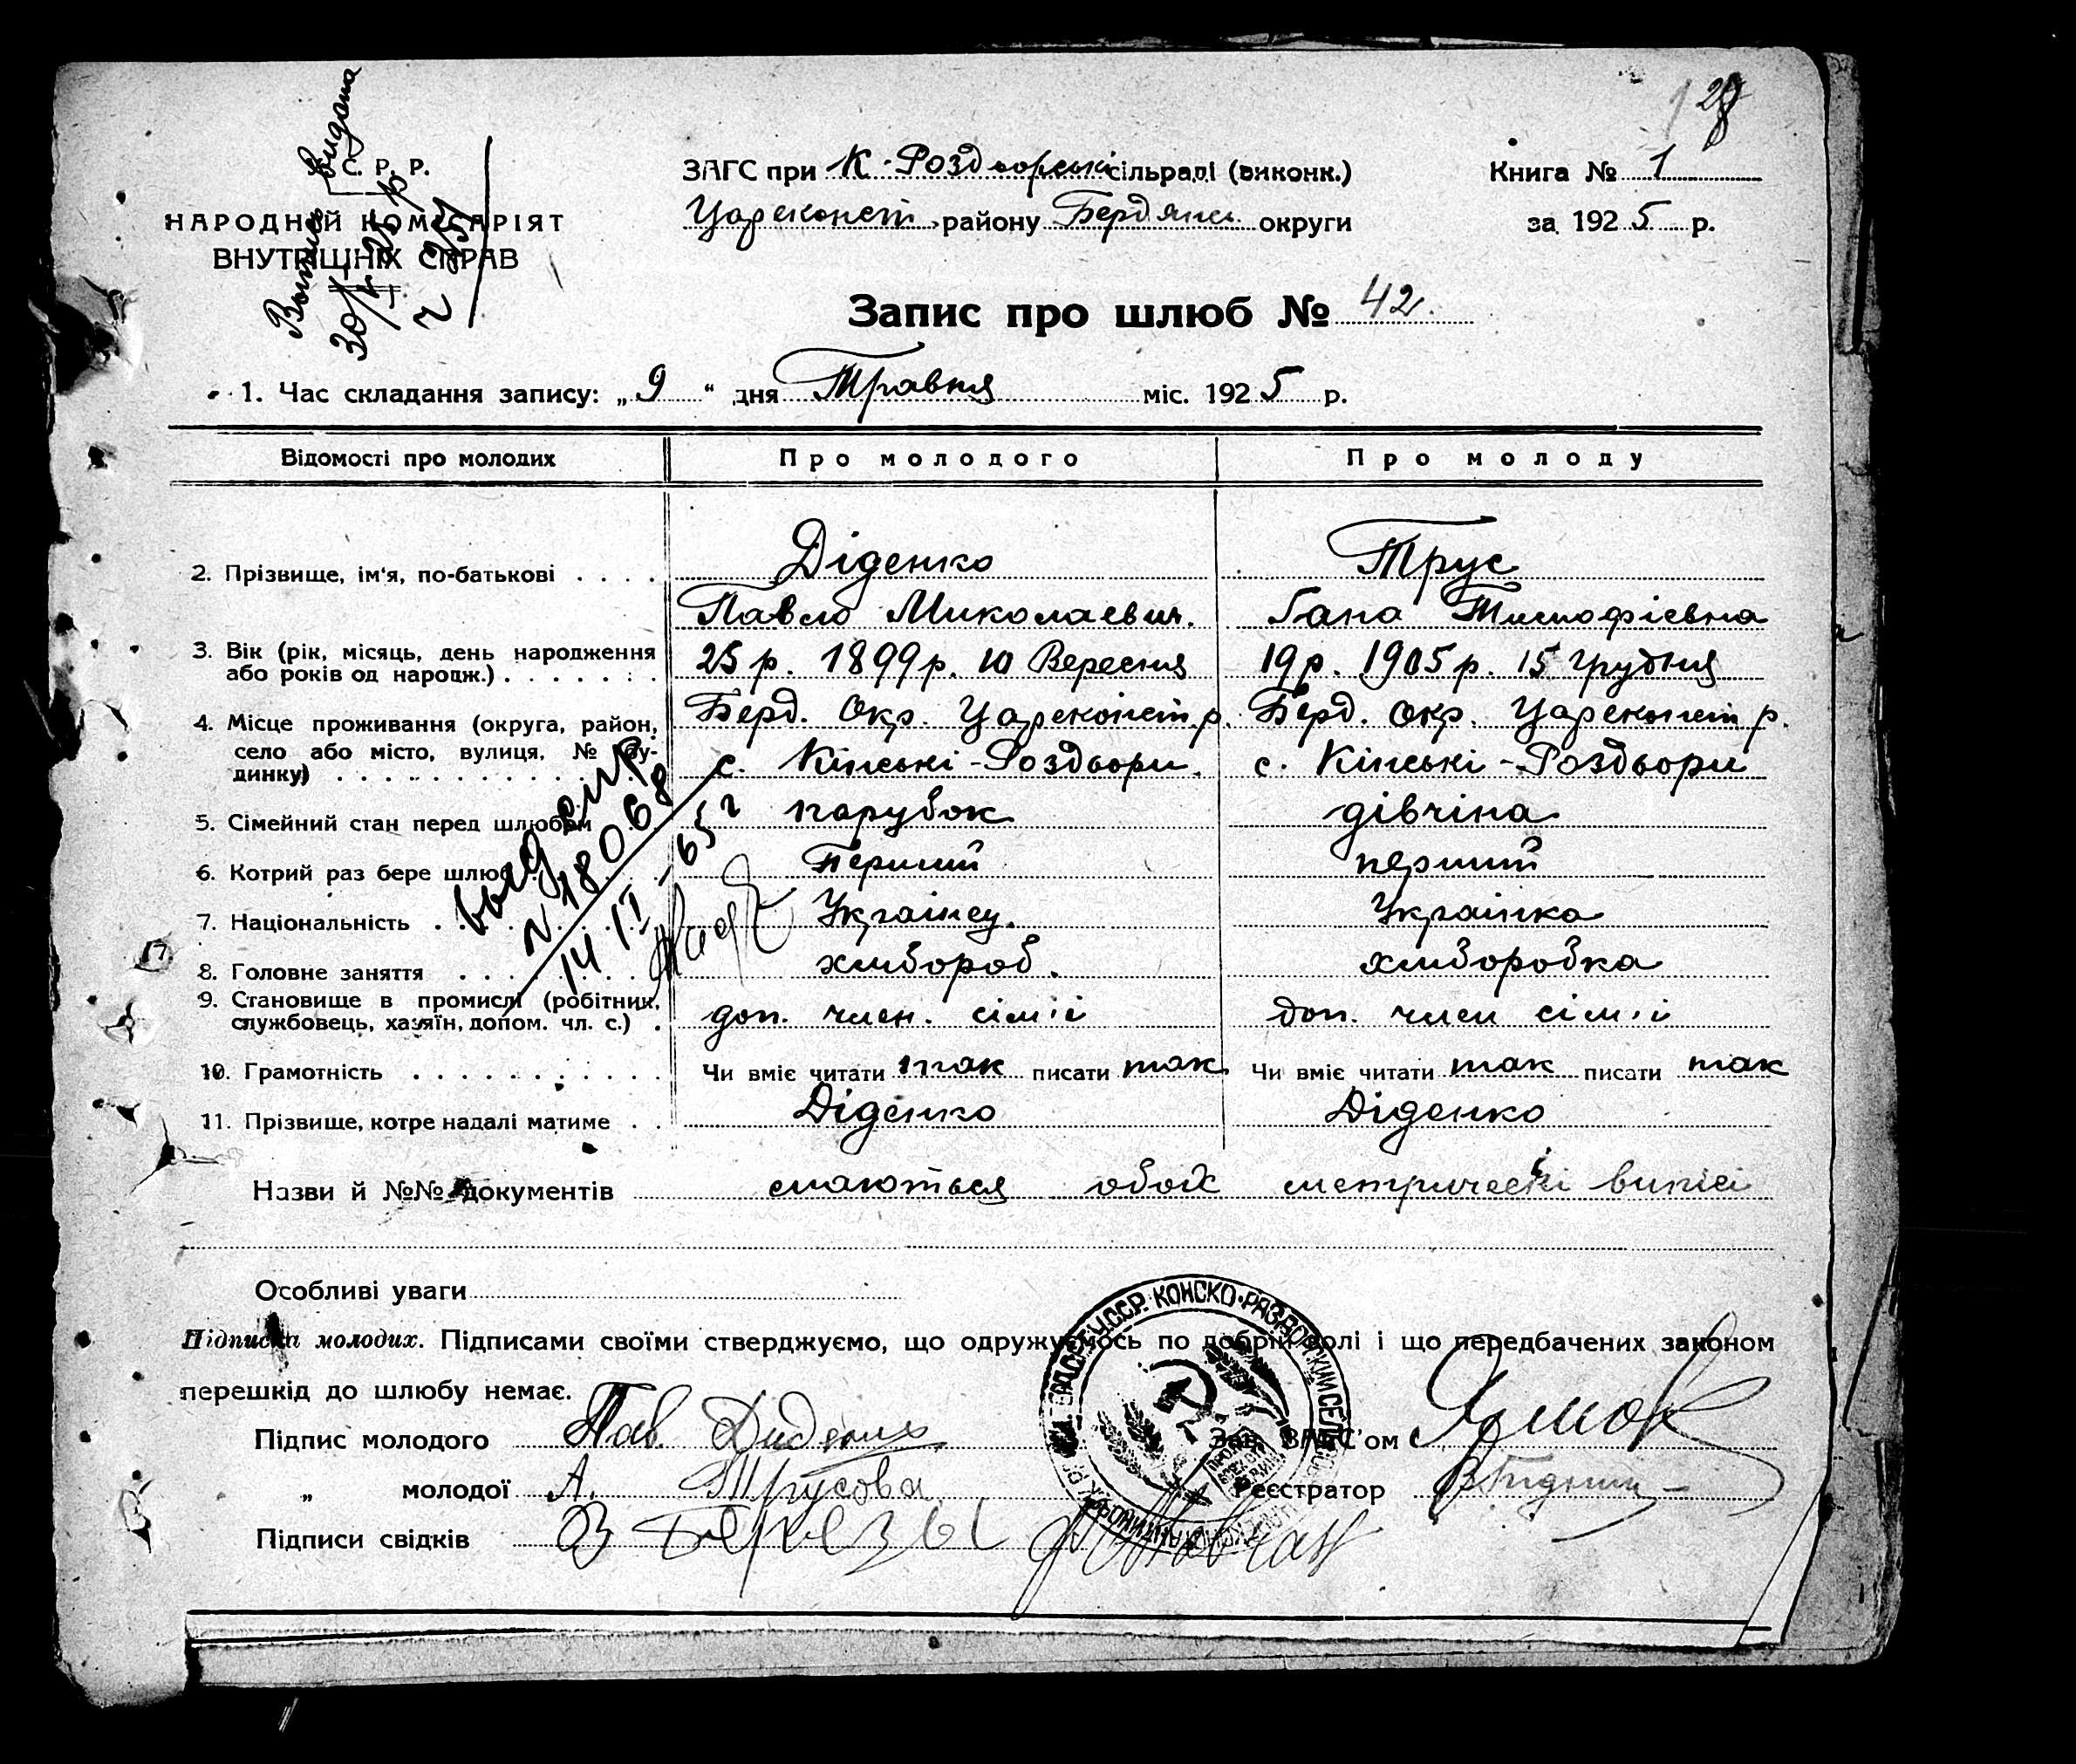 28
Випись видана
30/V 25 р
ч 257
С. Р. Р.
НАРОДНІЙ КОМІСАРІЯТ
ВНУТРІШНІХ СПРАВ
ЗАГС при К-Роздорські сільраді (виконк.)
Цареконст. району Бердянсь округи
Книга № 1
за 1925 р.
Запис про шлюб № 42.
1. Час складання запису: „9“ дня Травня міс. 1925 р.
Відомості про молодих Про молодого Про молоду
2. Прізвище, ім'я, по-батькові Діденко Трус
Павло Миколаевич. Гана Тимофієвна
3. Вік (рік, місяць, день народження 25 р. 1899 р. 10 Вересня 19 р. 1905 р. 15 грудня
або років од народж.)
4. Місце проживання (округа, район, Берд. Окр. Цареконст. р. Берд. Окр. Цареконст р.
село або місто, вулиця, № бу- с. Кінські-Роздори. с. Кінські-Роздори
динку)
5. Сімейний стан перед шлюбом парубок дівчіна
6. Котрий раз бере шлюб Перший перший
7. Національність Українец. Українка
8. Головне заняття хлібороб. хліборобка
9. Становище в промислі (робітник, доп. член. сімії доп. член сімії
службовець, хазяїн, допом. чл. с.)
10. Грамотність Чи вміє читати так писати так Чи вміє читати так писати так
11. Прізвище, котре надалі матиме Діденко Діденко
N 18068
14/II-65 г
Назви й №№ документів маються обоїх метрическі випісі
Особливі уваги
Підписка молодих. Підписами своїми стверджуємо, що одружуємось по добрій волі і що передбачених законом
перешкід до шлюбу немає.
Підпис молодого Пав. Диденко
Зав. ЗАГС'ом
„ молодої А. Трусова
Реєстратор
Підписи свідків
У.С.С.Р. КОНСКО-РАЗДОРСКИЙ СЕЛЬ